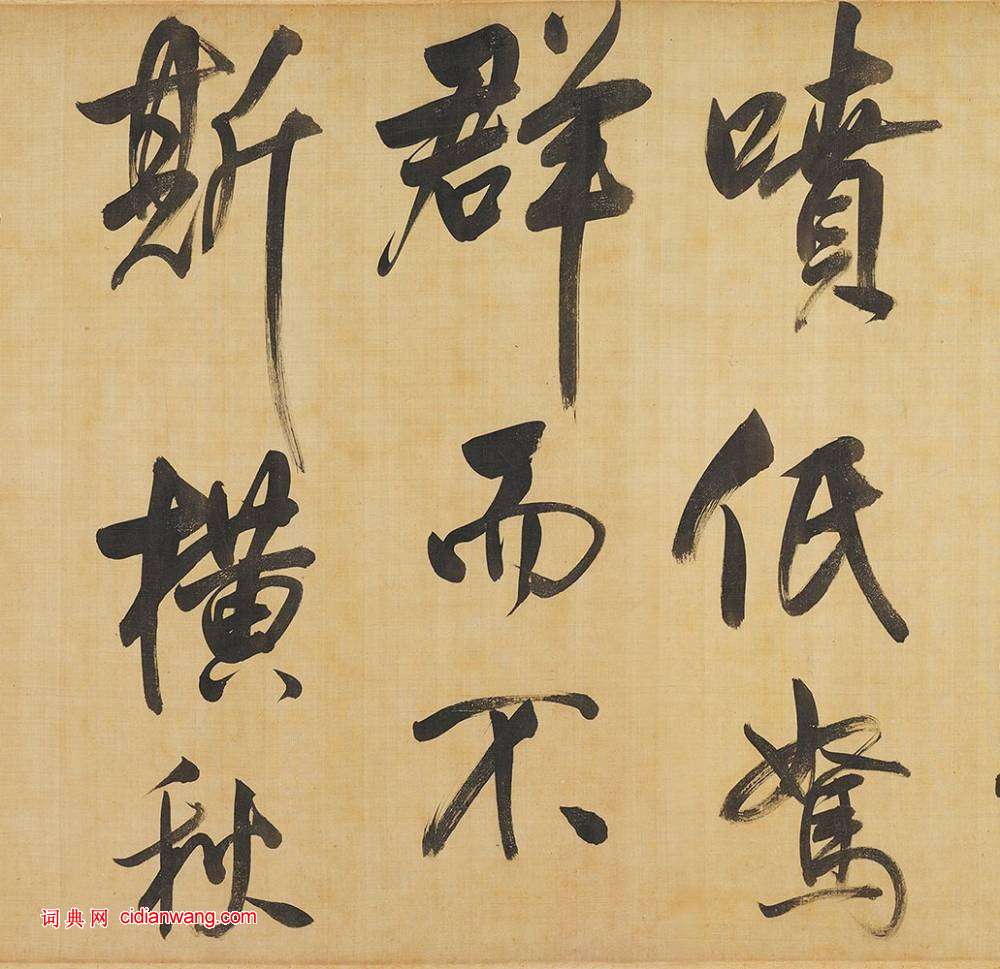 噴低駑
群而不
斯橫秋
词典网 cidianwang.com